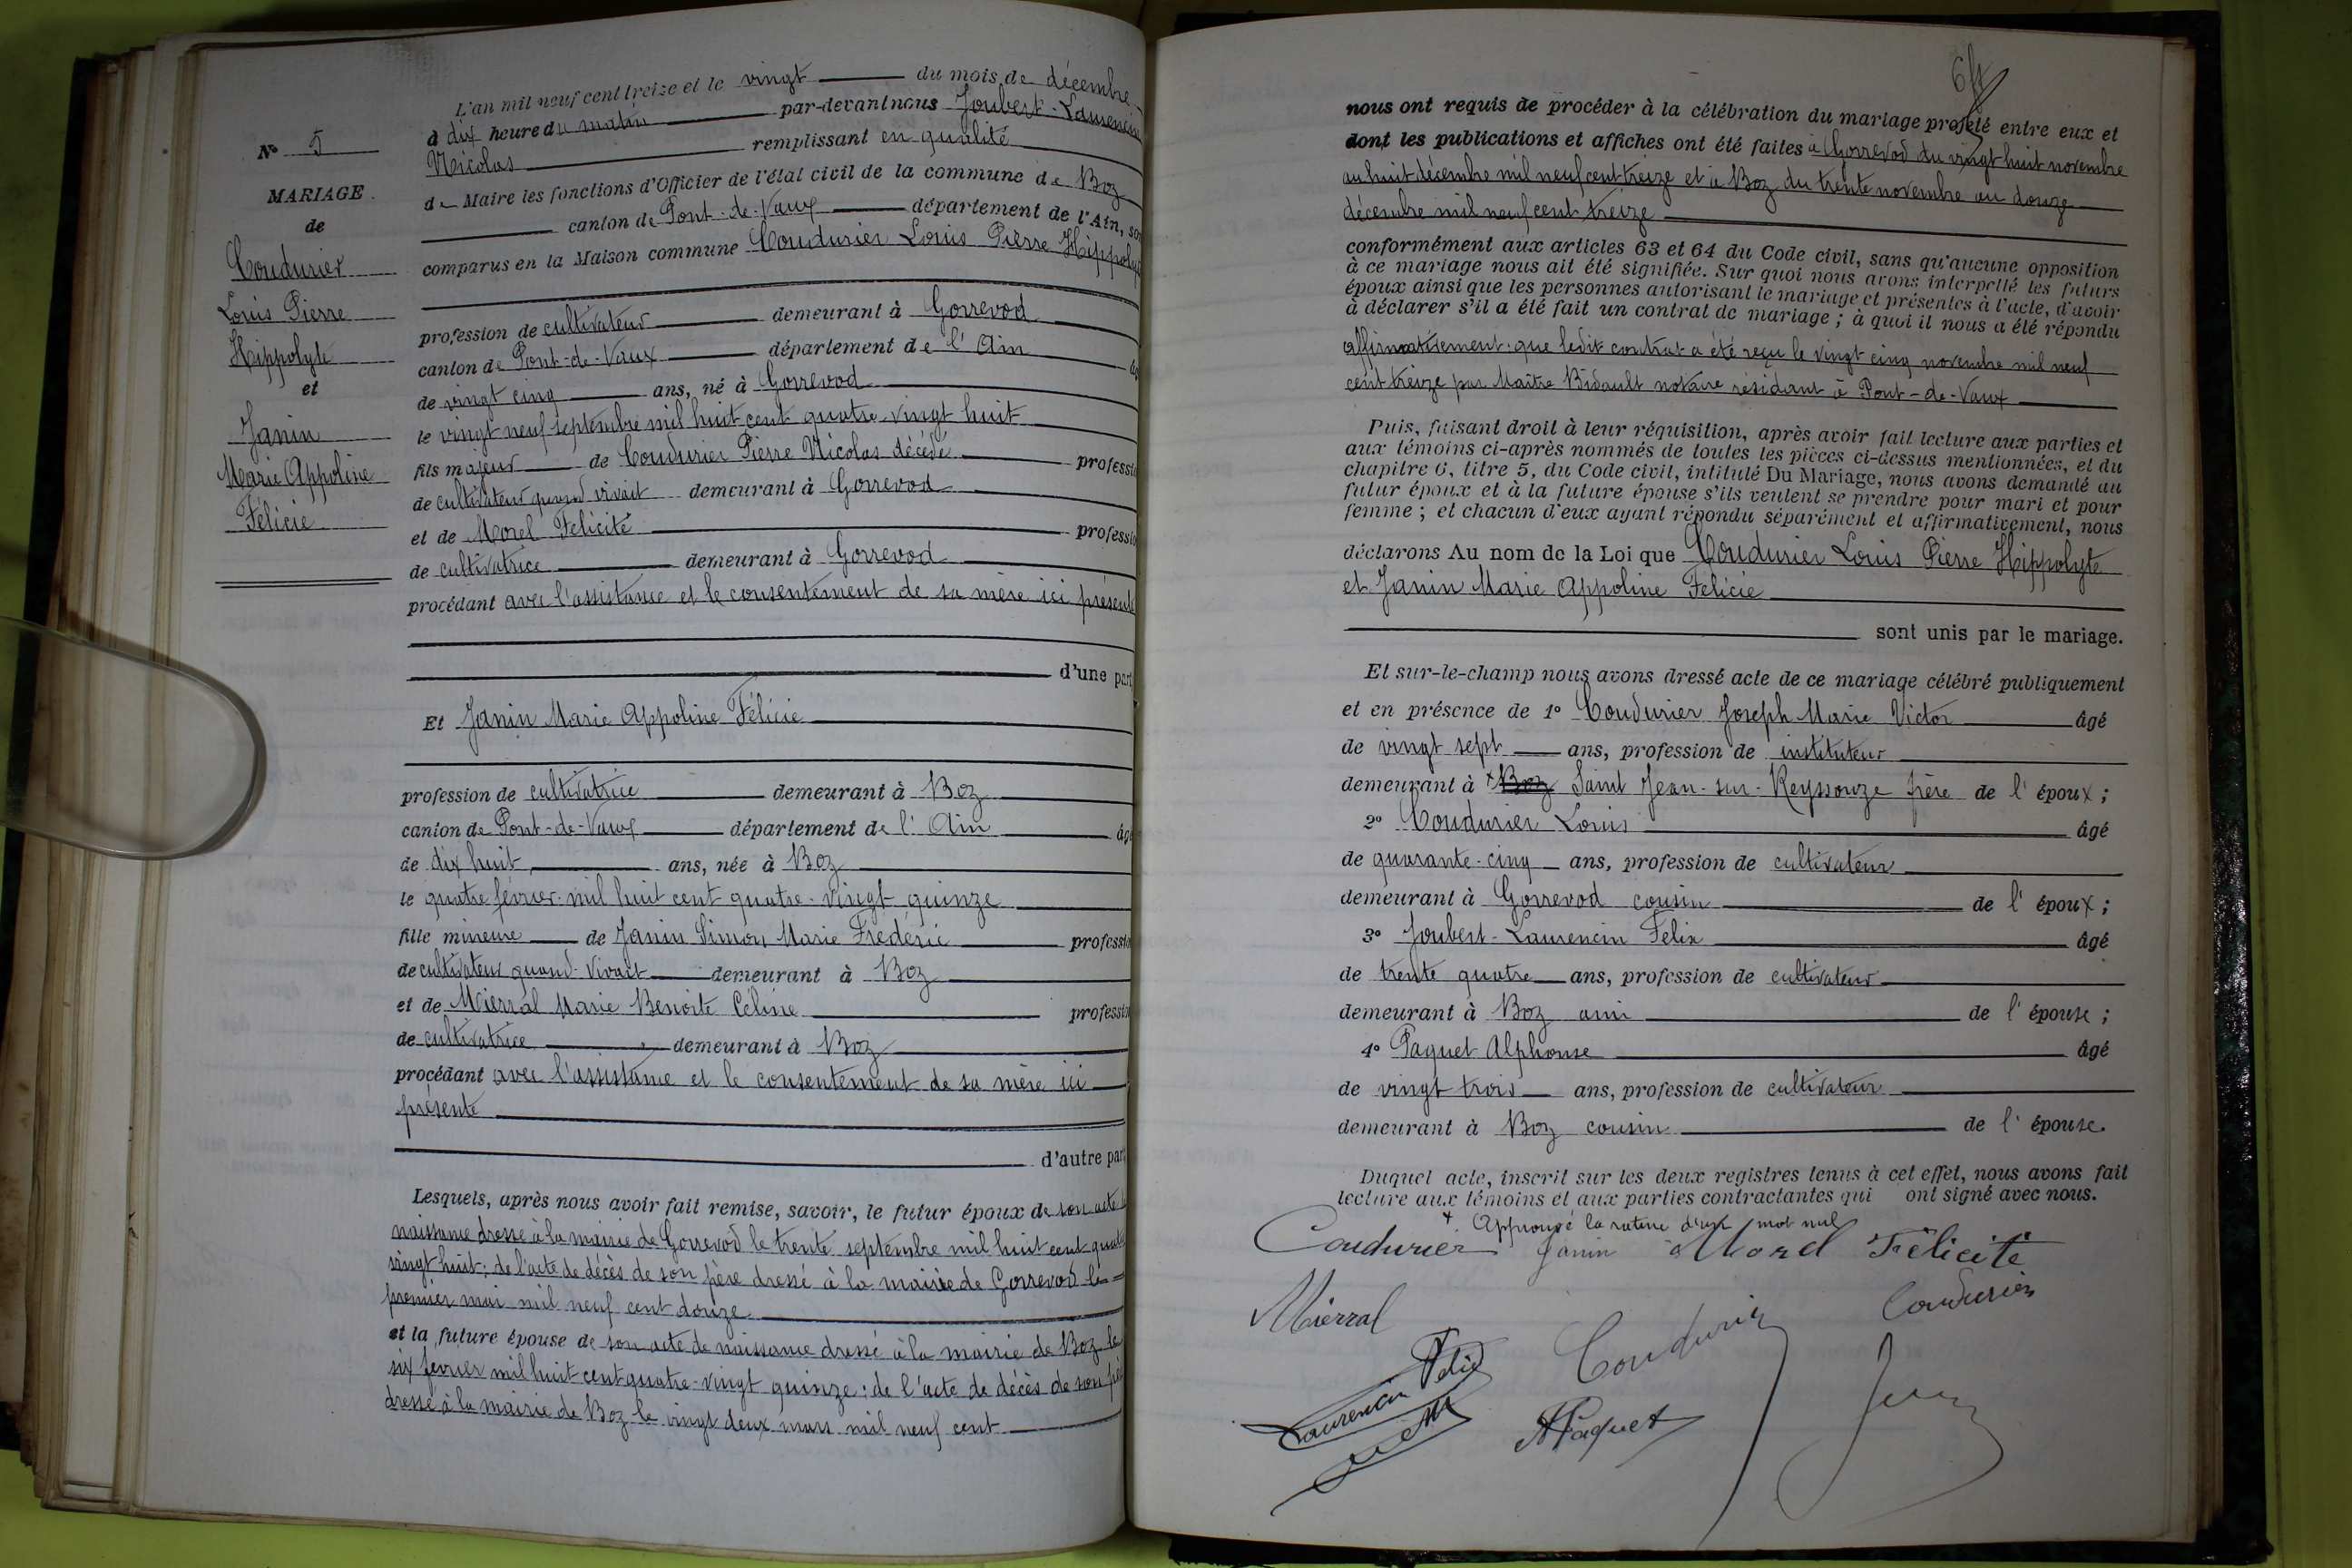 L'an mil neuf cent treize et le vingt du mois de décembre
à dix heure du matin par-devant nous Joubert-Laurencin
Nicolas remplissant en qualité
de Maire les fonctions d'Officier de l'état civil de la commune de Boz
canton de Pont-de-Vaux département de l'Ain, son
comparus en la Maison commune Coudurier Louis Pierre Hippolyte
profession de cultivateur demeurant à Gorrevod
canton de Pont-de-Vaux département de l'Ain âg
de vingt cinq ans, né à Gorrevod
le vingt neuf septembre mil huit cent quatre-vingt huit
fils majeur de Coudurier Pierre Nicolas décédé professio
de cultivateur quand vivait demeurant à Gorrevod
et de Morel Félicité professio
de cultivatrice demeurant à Gorrevod
procédant avec l'assistance et le consentement de sa mère ici présente
d'une part
Et Janin Marie Appoline Félicie
profession de cultivatrice demeurant à Boz
canton de Pont-de-Vaux département de l'Ain âgé
de dix huit ans, née à Boz
le quatre février mil huit cent quatre-vingt quinze
fille mineure de Janin Simon Marie Frédéric professio
de cultivateur quand vivait demeurant à Boz
et de Mierral Marie Benoite Céline profession
de cultivatrice demeurant à Boz
procédant avec l'assistance et le consentement de sa mère ici
présente
d'autre part
Lesquels, après nous avoir fait remise, savoir, le futur époux de son acte de
naissance dressé à la mairie de Gorrevod le trente septembre mil huit cent quatre
vingt huit; de l'acte de décès de son père dressé à la mairie de Gorrevod le
premier mai mil neuf cent douze
et la future épouse de son acte de naissance dressé à la mairie de Boz le
six février mil huit cent quatre-vingt quinze; de l'acte de décès de son père
dressé à la mairie de Boz le vingt deux mars mil neuf cent
No 5
MARIAGE
de
Coudurier
Louis Pierre
Hippolyte
et
Janin
Marie Appoline
Félicie
64
nous ont requis de procéder à la célébration du mariage projeté entre eux et
dont les publications et affiches ont été faites à Gorrevod du vingt huit novembre
au huit décembre mil neuf cent treize et à Boz du trente novembre au douze
décembre mil neuf cent treize
conformément aux articles 63 et 64 du Code civil, sans qu'aucune opposition
à ce mariage nous ait été signifiée. Sur quoi nous avons interpellé les futurs
époux ainsi que les personnes autorisant le mariage et présentes à l'acte, d'avoir
à déclarer s'il a été fait un contrat de mariage; à quoi il nous a été répondu
affirmativement: que ledit contrat a été reçu le vingt cinq novembre mil neuf
cent treize par Maître Bidault notaire résidant à Pont-de-Vaux
Puis, faisant droit à leur réquisition, après avoir fait lecture aux parties et
aux témoins ci-après nommés de toutes les pièces ci-dessus mentionnées, et du
chapitre 6, titre 5, du Code civil, intitulé Du Mariage, nous avons demandé au
futur époux et à la future épouse s'ils veulent se prendre pour mari et pour
femme; et chacun d'eux ayant répondu séparément et affirmativement, nous
déclarons Au nom de la Loi que Coudurier Louis Pierre Hippolyte
et Janin Marie Appoline Félicie
sont unis par le mariage.
Et sur-le-champ nous avons dressé acte de ce mariage célébré publiquement
et en présence de 1º Coudurier Joseph Marie Victor âgé
de vingt sept ans, profession de instituteur
demeurant à + Boz Saint Jean-sur-Reyssouze frère de l'époux;
2º Coudurier Louis âgé
de quarante-cinq ans, profession de cultivateur
demeurant à Gorrevod cousin de l'époux;
3º Joubert-Laurencin Felix âgé
de trente quatre ans, profession de cultivateur
demeurant à Boz ami de l'épouse;
4º Paquet Alphonse âgé
de vingt trois ans, profession de cultivateur
demeurant à Boz cousin de l'épouse.
Duquel acte, inscrit sur les deux registres tenus à cet effet, nous avons fait
lecture aux témoins et aux parties contractantes qui ont signé avec nous.
+. Approuvé la rature d'un mot nul
Coudurier Janin Morel Félicité
Mierral Coudurier Coudurier
Laurencin Felix
APaquet